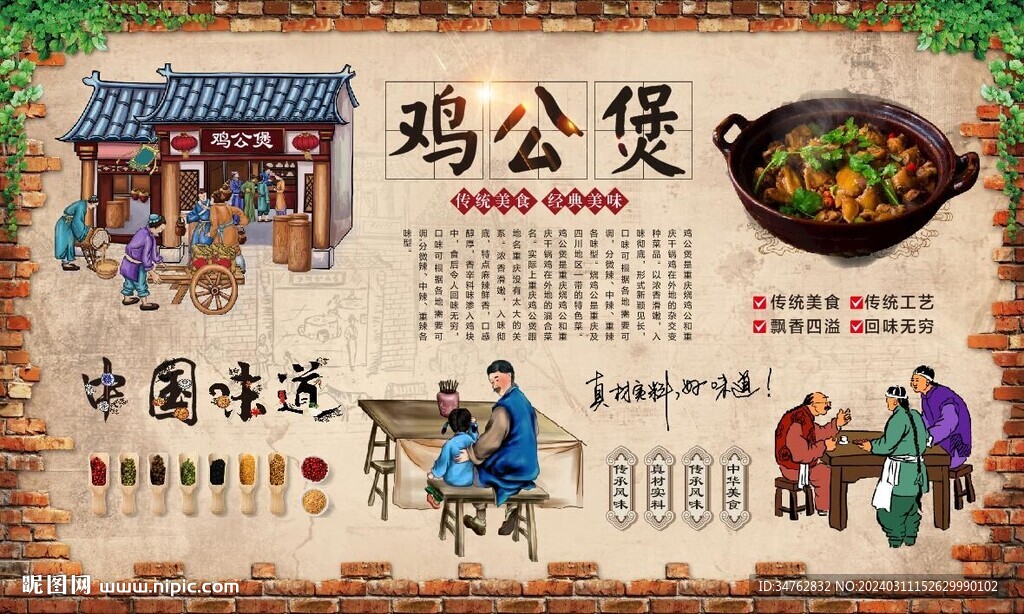 鸡公煲
鸡公煲
传统美食 经典美味
鸡公煲是重庆烧鸡公和重
庆干锅鸡在外地的杂交变
种菜品。以浓香滑嫩，入
味彻底，形式新颖见长，
口味可根据各地需要可
调，分微辣、中辣、重辣
各味型。烧鸡公是重庆及
四川地区一带的特色菜。
鸡公煲是重庆烧鸡公和重
庆干锅鸡在外地的混合菜
名。实际上重庆鸡公煲跟
地名重庆没有太大的关
系。浓香滑嫩，入味彻
底，特点麻辣鲜香，口感
醇厚，香辛料味渗入鸡块
中，食后令人回味无穷，
口味可根据各地需要可
调分微辣、中辣、重辣各
味型。
传统美食 传统工艺
飘香四溢 回味无穷
中国味道
真材实料,好味道！
传承风味
真材实料
传承风味
中华美食
昵图网 www.nipic.com
ID:34762832 NO:20240311152629990102